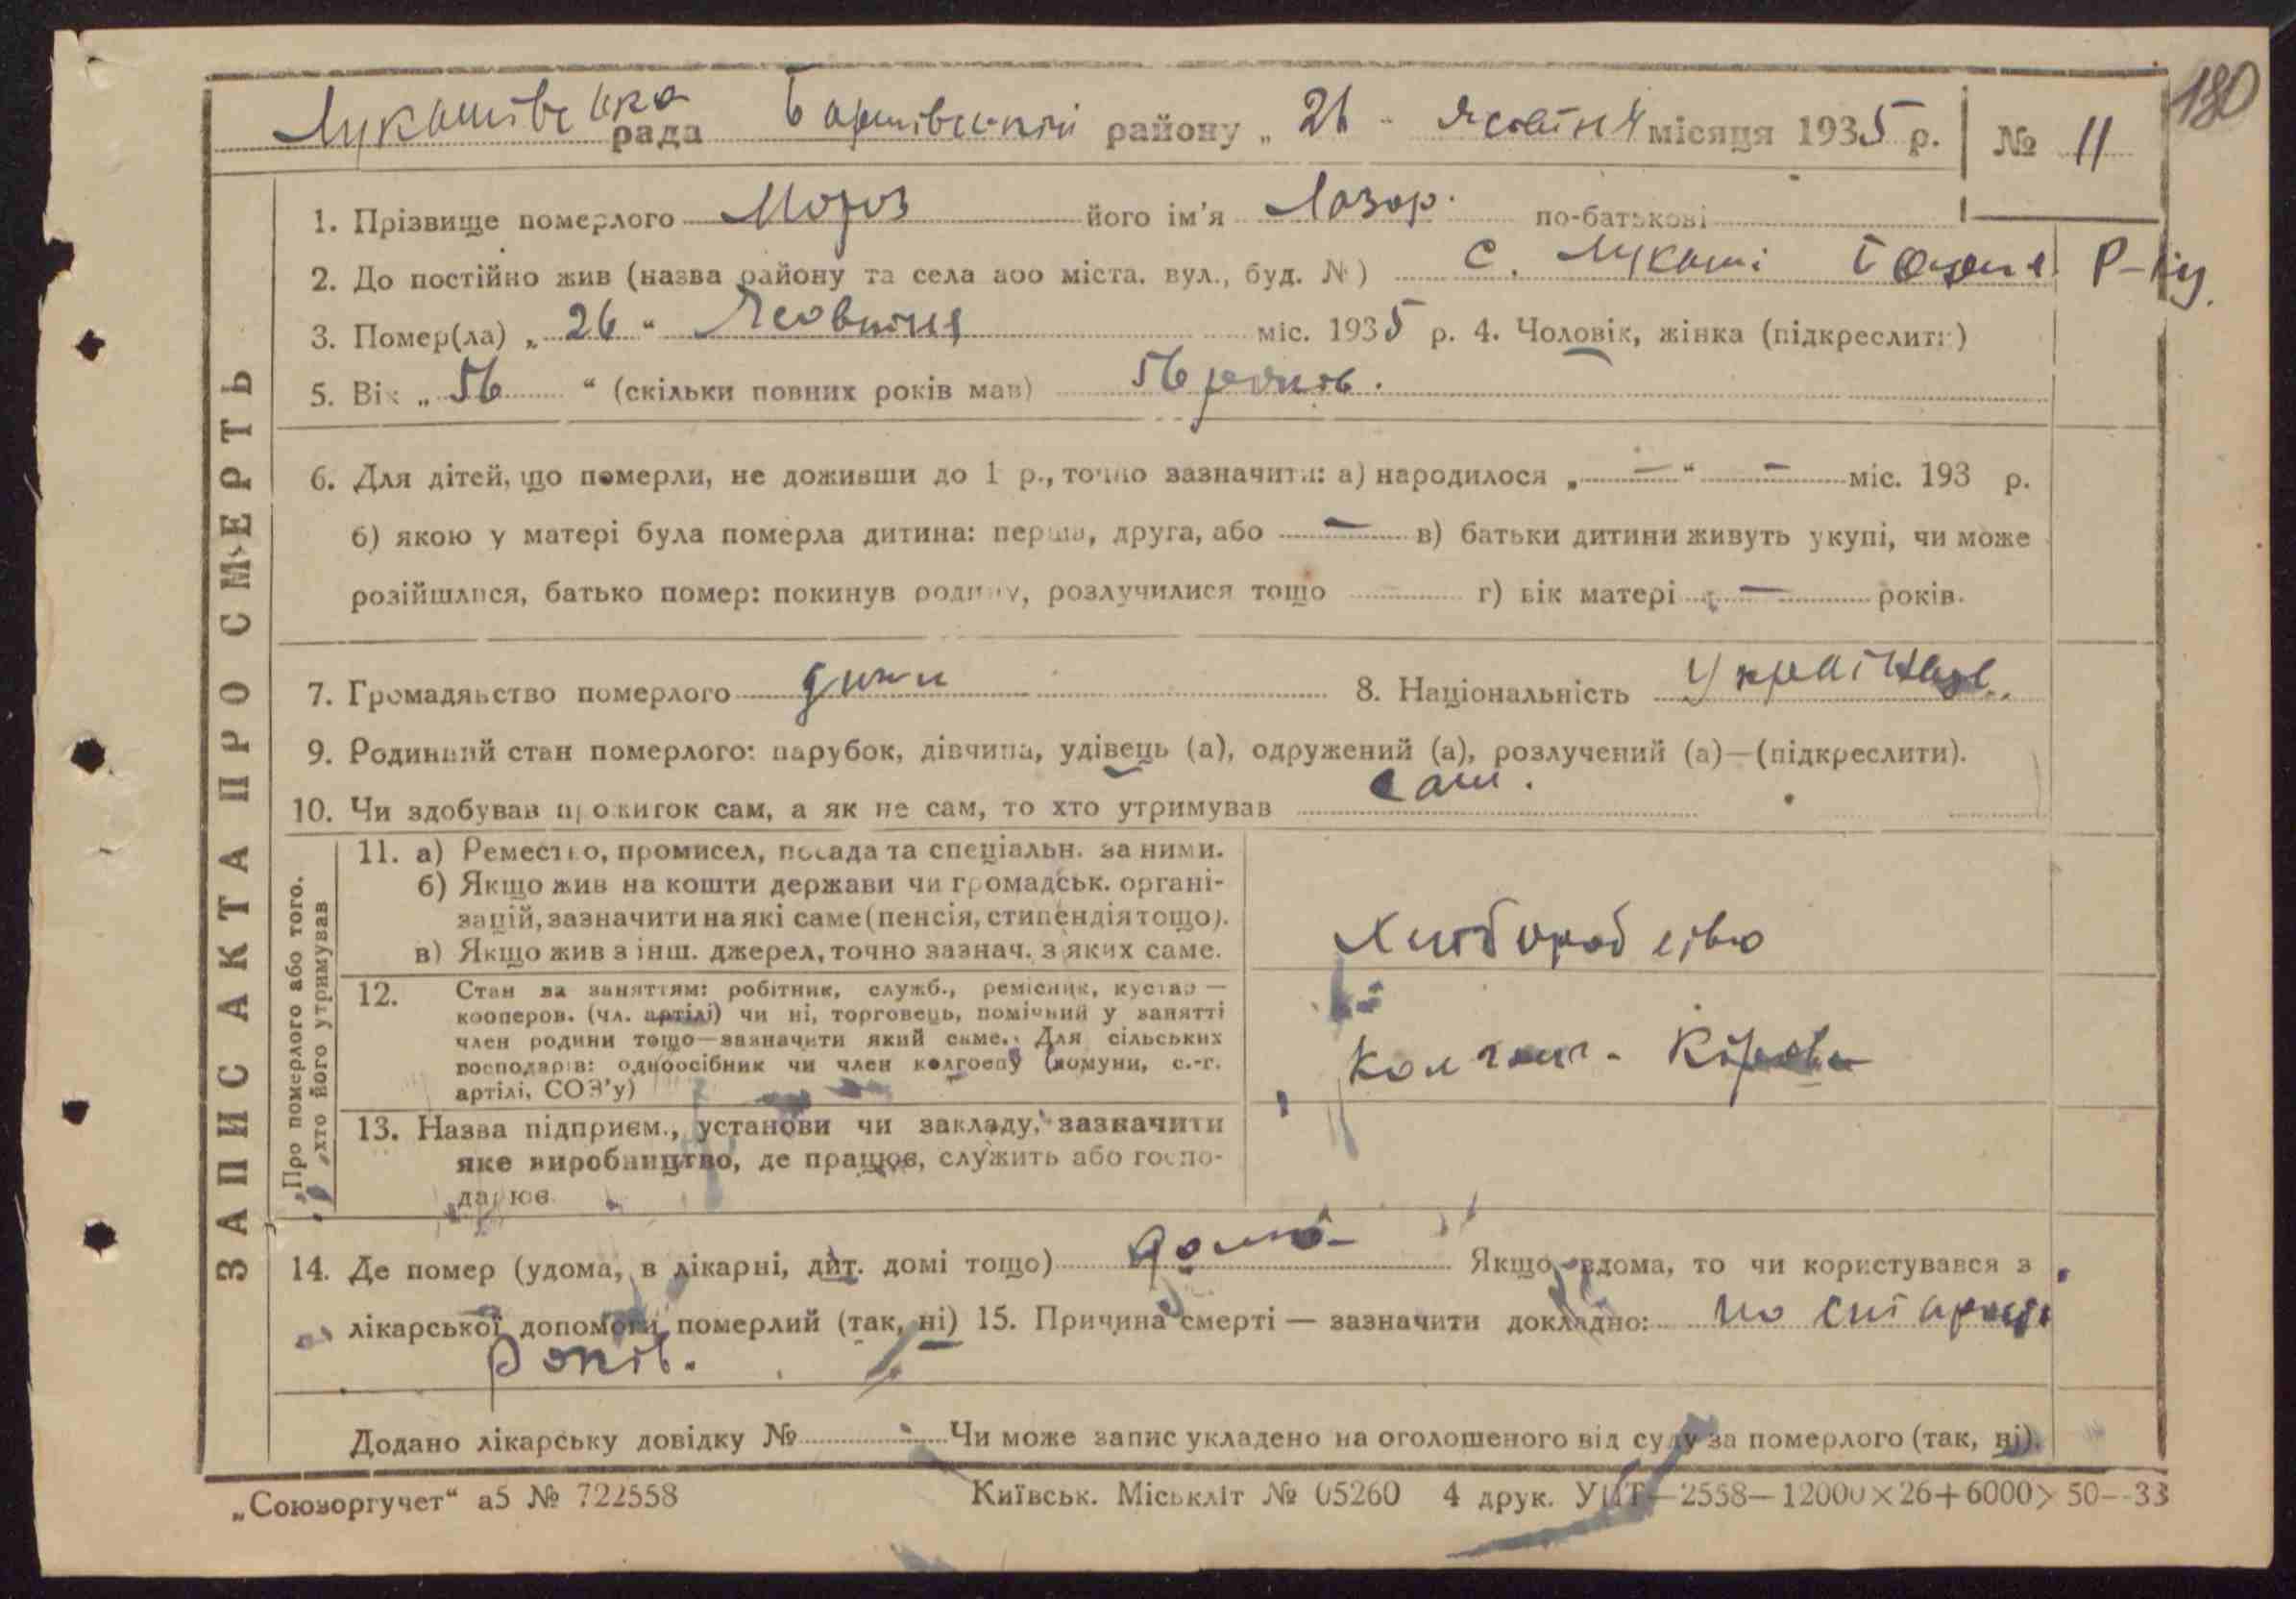 Лукашівська рада Баришівський району „ 26 " Жовтня місяця 1935 р. № 11
180
1. Прізвище померлого Мороз його ім'я Лазар. по-батькові
2. До постійно жив (назва району та села або міста. вул., буд. №) с. Лукаші Р-ну.
3. Помер(ла) „ 26 " Жовтня міс. 1935 р. 4. Чоловік, жінка (підкреслити)
5. Вік „ 56 " (скільки повних років мав) 56 років.
6. Для дітей, що померли, не доживши до 1 р., точно зазначити: а) народилося „ — " — міс. 193 р.
б) якою у матері була померла дитина: перша, друга, або — в) батьки дитини живуть укупі, чи може
розійшлися, батько помер: покинув родину, розлучилися тощо г) вік матері — років.
7. Громадянство померлого 8. Національність Українец.
9. Родинний стан померлого: парубок, дівчина, удівець (а), одружений (а), розлучений (а)—(підкреслити).
10. Чи здобував прожиток сам, а як не сам, то хто утримував сам.
ЗАПИС АКТА ПРО СМЕРТЬ
Про померлого або того.
хто його утримував
11. а) Ремество, промисел, посада та спеціальн. за ними.
б) Якщо жив на кошти держави чи громадськ. органі-
зацій, зазначити на які саме (пенсія, стипендія тощо).
в) Якщо жив з інш. джерел, точно зазнач. з яких саме.
Хліборобство
12. Стан за заняттям: робітник, служб., ремісник, кустар —
кооперов. (чл. артілі) чи ні, торговець, помічний у занятті
член родини тощо—зазначити який саме. Для сільських
господарів: одноосібник чи член колгоспу (комуни, с.-г.
артілі, СОЗ'у)
13. Назва підприєм., установи чи закладу, зазначити
яке виробництво, де працює, служить або госпо-
дарює
14. Де помер (удома, в лікарні, дит. домі тощо) дома Якщо вдома, то чи користувався з
лікарської допомоги померлий (так, ні) 15. Причина смерті — зазначити докладно: по старости
років.
Додано лікарську довідку № Чи може запис укладено на оголошеного від суду за померлого (так, ні).
„Союзоргучет" а5 № 722558 Київськ. Міськліт № 05260 4 друк. УПТ—2558—12000×26+6000×50—33